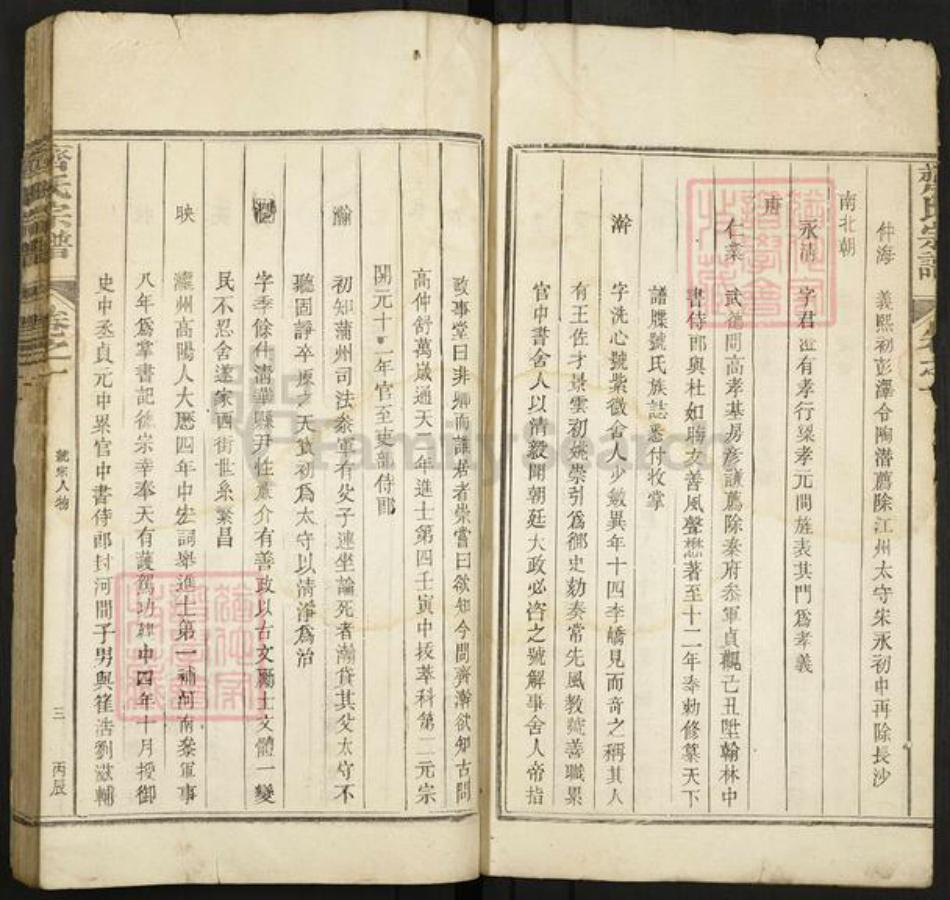 仲海 義熙初彭澤令陶潛薦除江州太守宋永初中再除長沙
南北朝
永清 字君澄有孝行梁孝元間旌表其門爲孝義
唐
仁業 武德間高孝基房彥謙薦除秦府叅軍貞觀己丑陞翰林中
書侍郎與杜如晦友善風聲懋著至十二年奉勅修纂天下
譜牒號氏族誌悉付收掌
澣 字洗心號紫微舍人少敏異年十四李嶠見而奇之稱其人
有王佐才景雲初姚崇引爲御史劾奏常先風教號善職累
官中書舍人以清毅聞朝廷大政必咨之號解事舍人帝指
政事堂曰非卿而誰居者崇嘗曰欲知今問齊澣欲知古問
高仲舒萬歲通天二年進士第四壬寅中拔萃科第二元宗
開元十一年官至吏部侍郎
瀚 初知蒲州司法叅軍有父子連坐論死者瀚貸其父太守不
聽固諍卒原之天寶初爲太守以清淨爲治
字季餘仕清華縣尹性嚴介有善政以古文勵士文體一變
民不忍舍遂家西街世系繁昌
映 瀛州高陽人大歷四年中宏詞舉進士第一補河南叅軍事
八年爲掌書記德宗幸奉天有護駕功興中四年十月授御
史中丞貞元中累官中書侍郎封河間子男與崔浩劉滋輔
齊氏宗譜
卷之一
號宗人物
三
丙辰
齊氏宗譜
FamilySearch